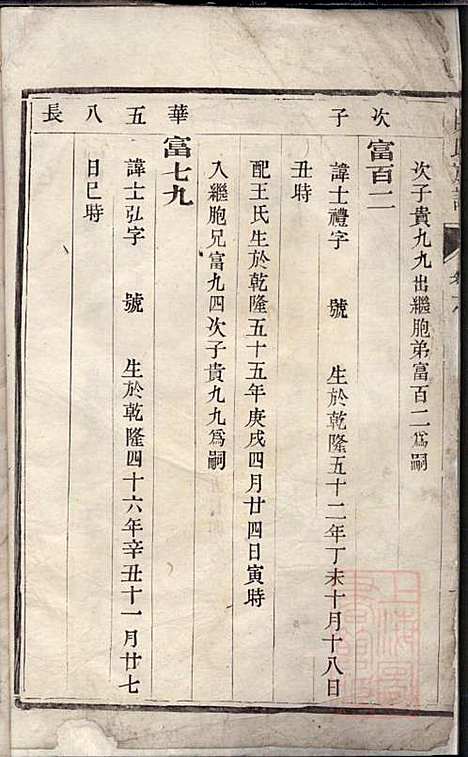 次子貴九九出繼胞弟富百二爲嗣
次子
富百二
諱士禮字 號 生於乾隆五十二年丁未十月十八日
丑時
配王氏生於乾隆五十五年庚戌四月廿四日寅時
入繼胞兄富九四次子貴九九爲嗣
華五八長
富七九
諱士弘字 號 生於乾隆四十六年辛丑十一月廿七
日巳時